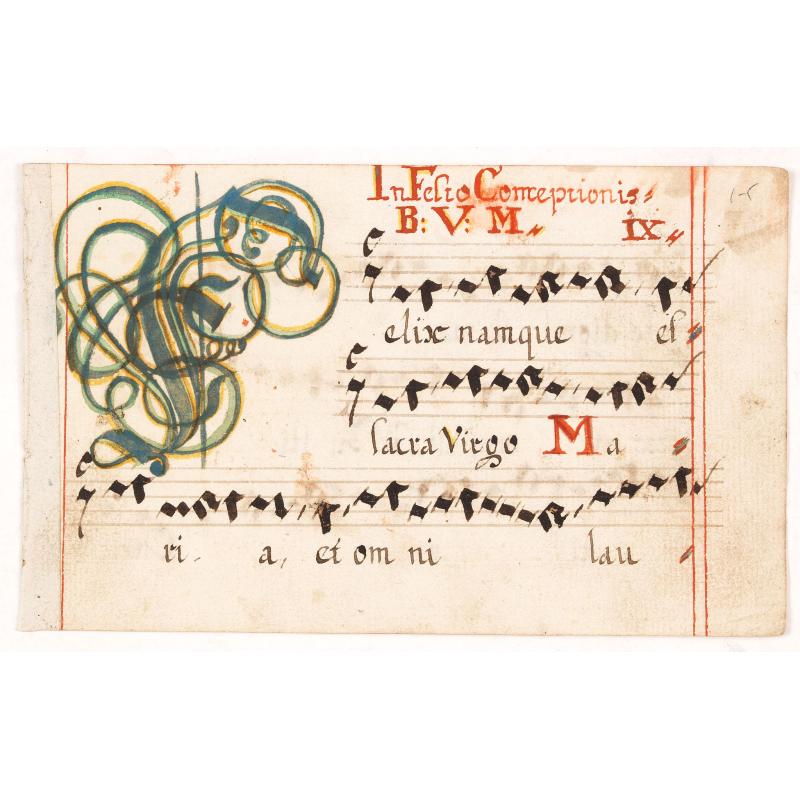 In Festo Conceptionis
B: V: M. IX
Felix namque es
sacra Virgo Ma
ri- a, et om ni lau